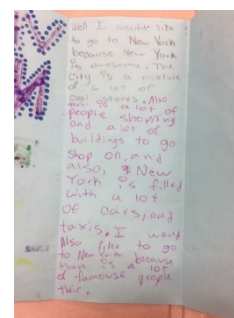 Well I would like
to go to New York
because New York
is awesome. The
City is a mixture
of a lot of
cool stores. Also
ther is a lot of
people shopping
and a lot of
buildings to go
shop on, and
also, New
York is filled
with a lot
of cars, and
taxis. I would
Also like to go
to New York because
ther is a lot
of famouse people
ther.